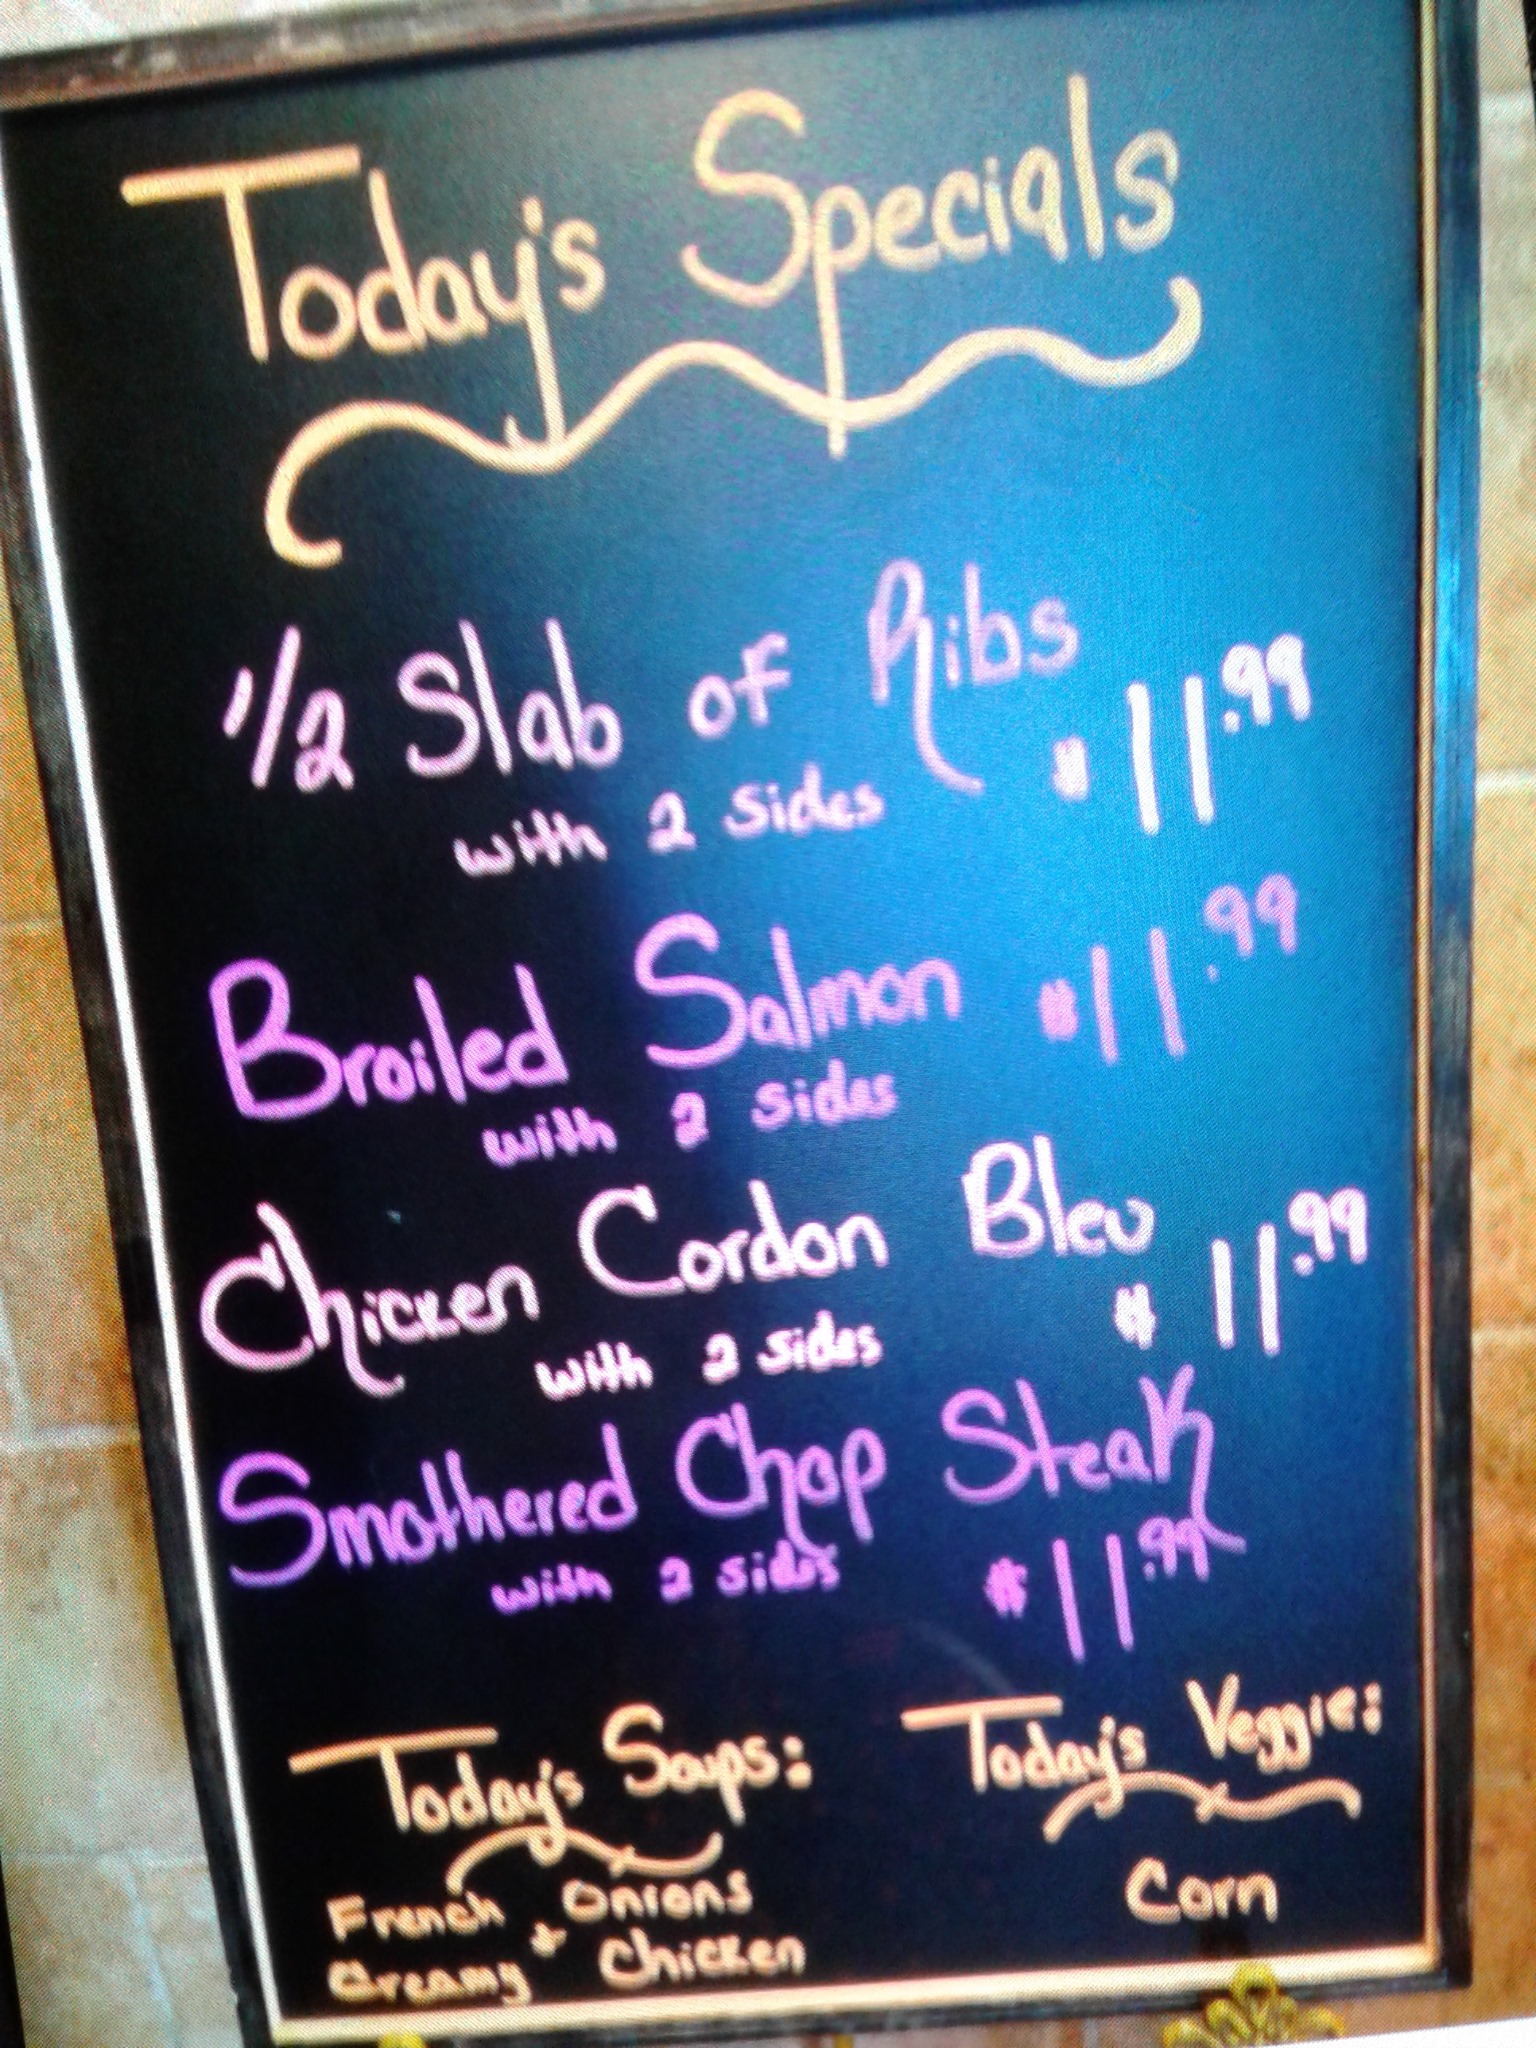 Today's Specials
1/2 Slab of Ribs
with 2 sides $11.99
Broiled Salmon $11.99
with 2 sides
Chicken Cordon Bleu
with 2 sides $11.99
Smothered Chop Steak
with 2 sides $11.99
Today's Soups:
French Onions
+
Creamy Chicken
Today's Veggie:
Corn